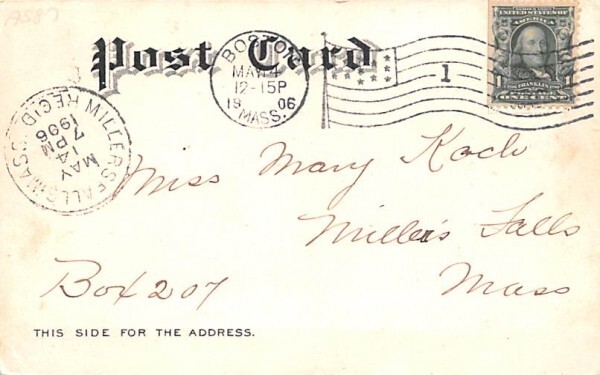 A587
Post Card
BOSTON
MAY 4
12-15P
1906
MASS.
1
UNITED STATES OF
FRANKLIN
ONE CENT
MILLERS FALLS MASS.
REC'D.
MAY
14
7 PM
1906
Miss Mary Koch
Millers Falls
Mass
Box 207
THIS SIDE FOR THE ADDRESS.